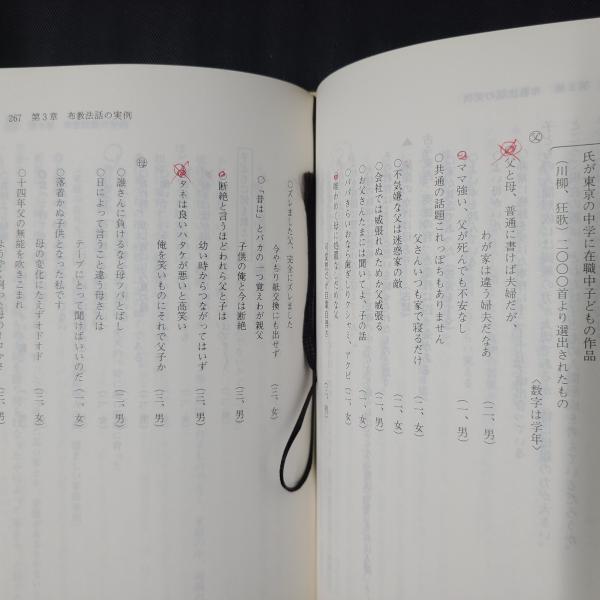 氏が東京の中学に在職中子どもの作品
(川柳、狂歌)二〇〇〇首より選出されたもの
〈数字は学年〉
父
父と母、普通に書けば夫婦だが、
わが家は違う婦夫だなあ
(二、男)
○ママ強い、父が死んでも不安なし
(一、男)
○共通の話題これっぽちもありません
父さんいつも家で寝るだけ
(一、女)
○不気嫌な父は迷惑家の敵
(二、女)
○会社では威張れぬためか父威張る
○お父さんたまには聞いてよ、子の話
267 第3章 布教法話の実例
○ズレました父、完全にズレました
今やちり紙交換にも出せず
(二、女)
○「昔は」とバカの一つ覚えわが親父
子供の俺と今は断絶
(三、男)
○断絶と言うほどわれら父と子は
幼い時からつながってはいず
(三、女)
タネは良いハタケが悪いと高笑い
俺を笑いものにそれで父子か
(三、男)
母
○誰さんに負けるなと母ツバとばし
(二、男)
○日によって言うこと違う母さんは
テープにとって聞けばいいのだ
(一、女)
○落着かぬ子供となった私です
母の変化にたえずオドオド
(三、女)
○十四年父の無能を吹きこまれ
(三、男)